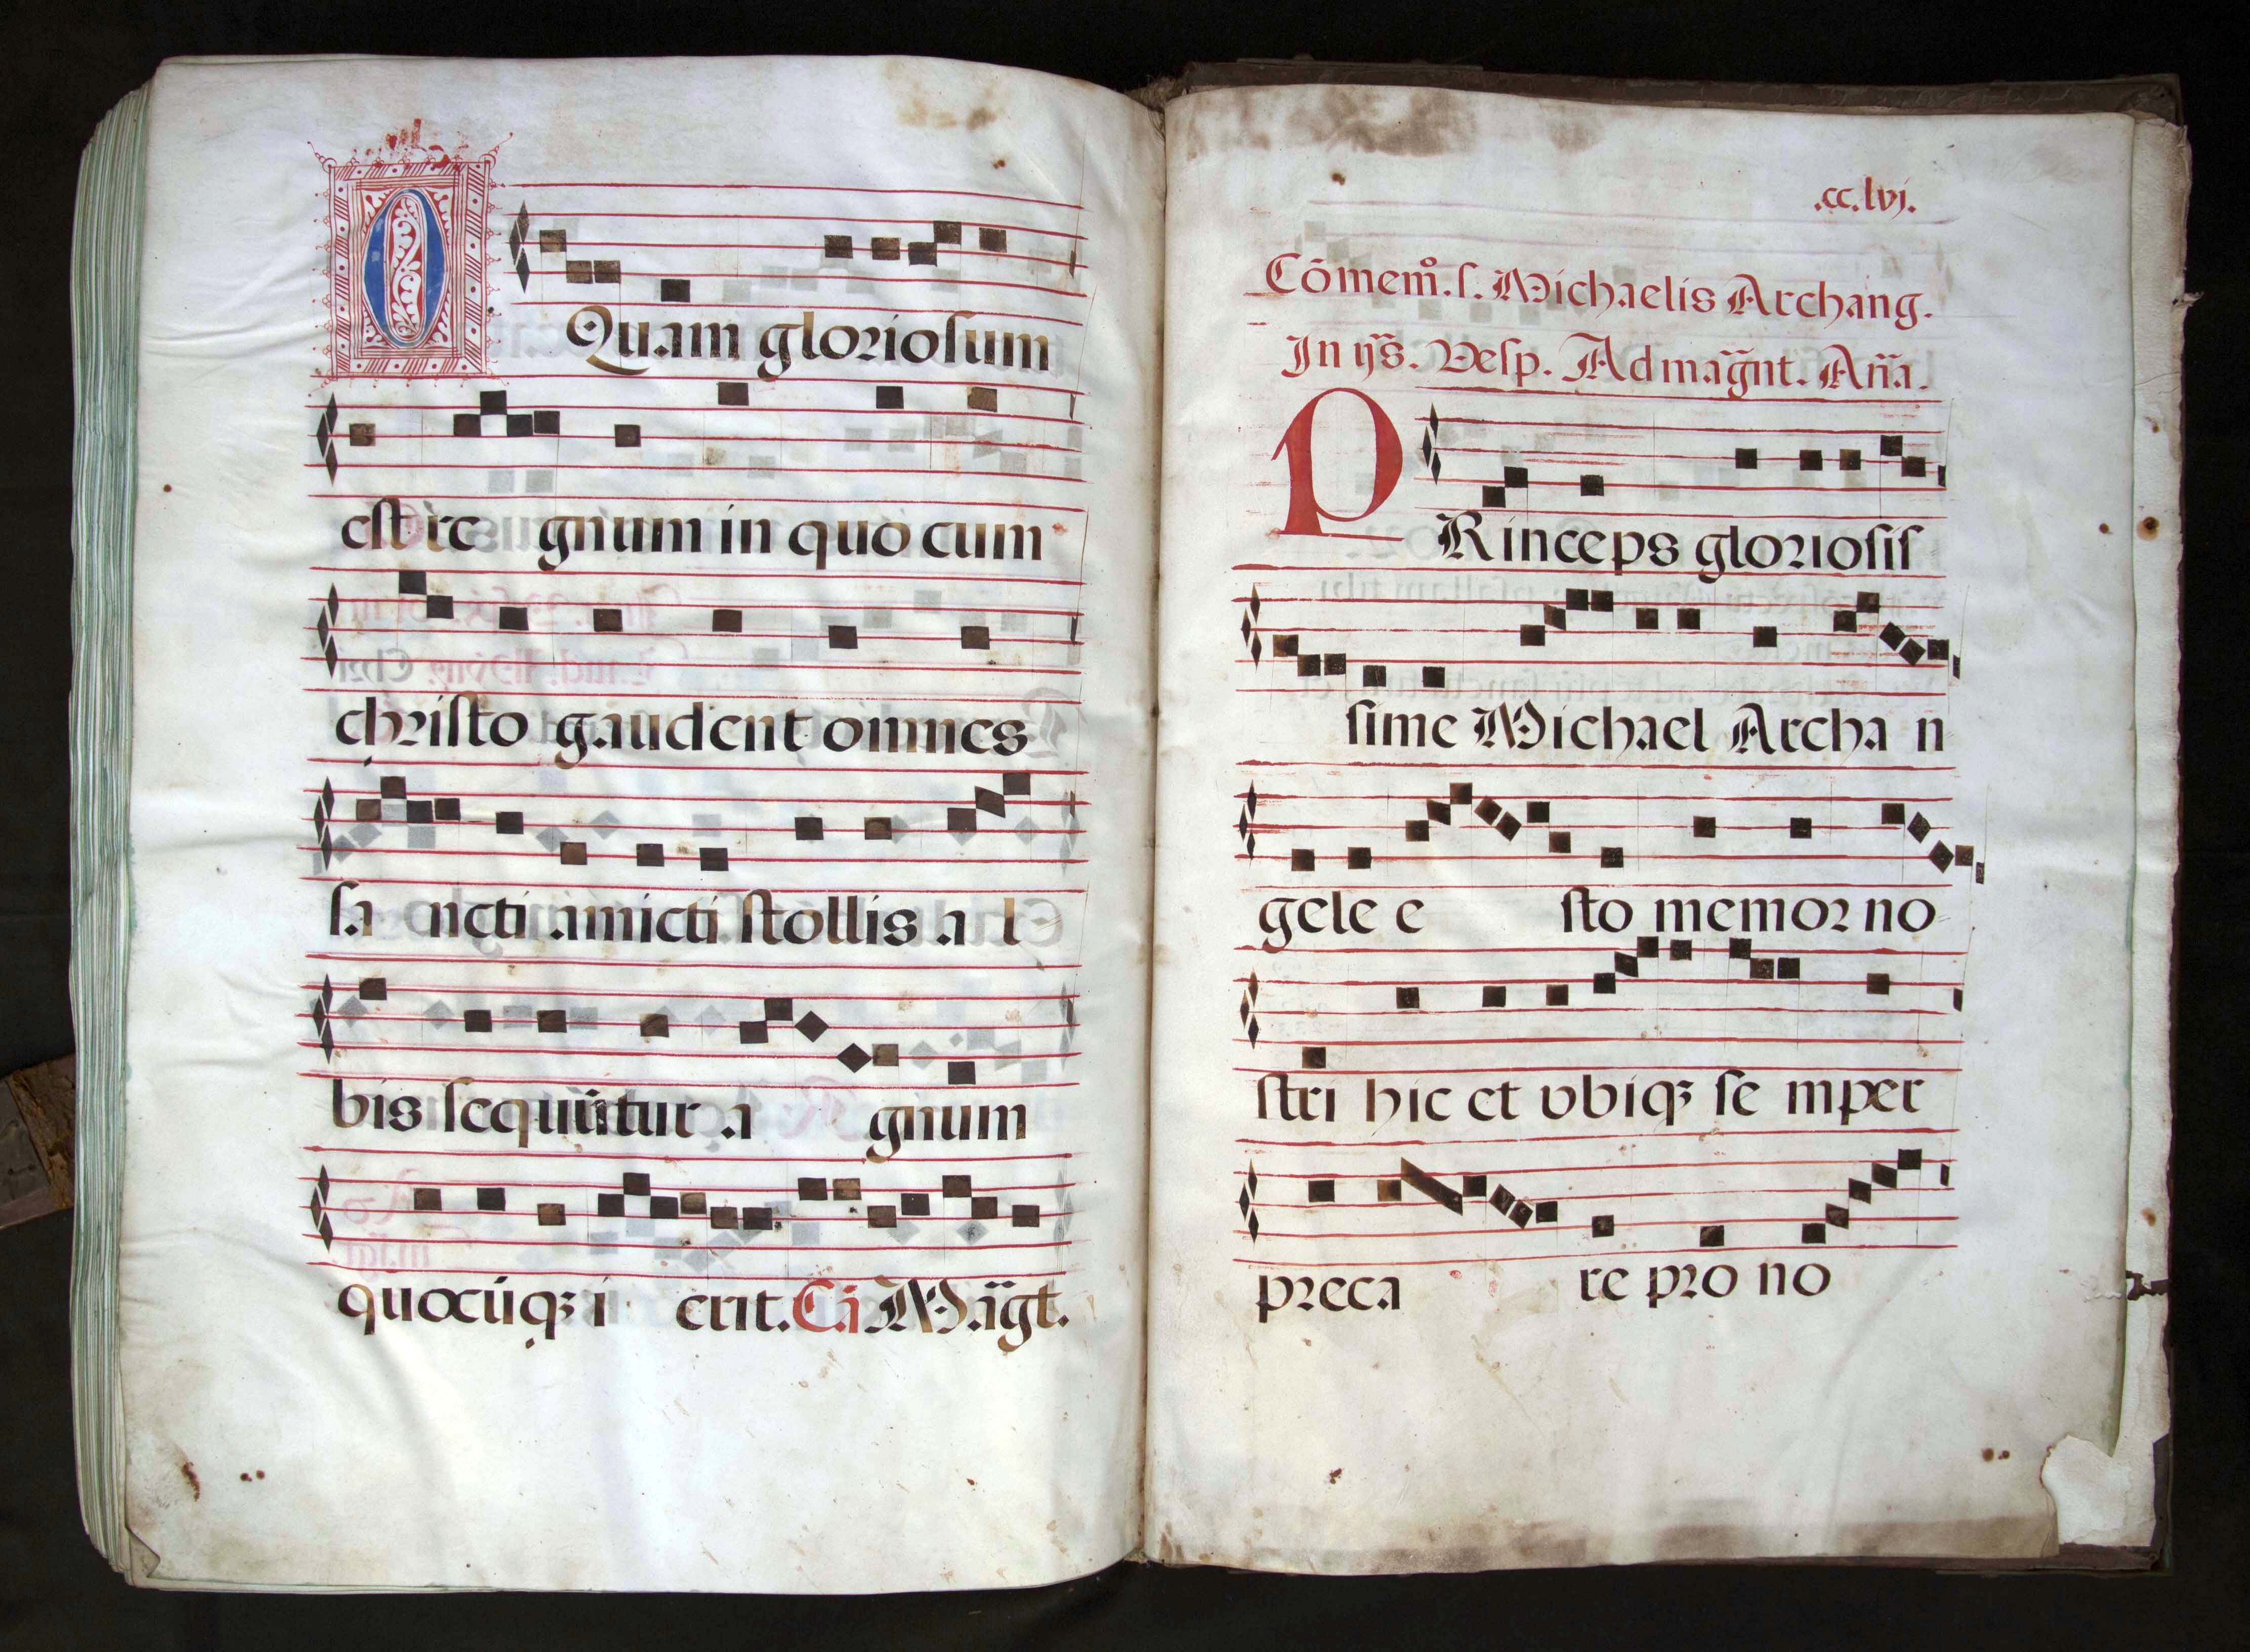 O Quam gloriosum
est re gnum in quo cum
christo gaudent omnes
sa ncti amicti stollis a l
bis sequūtur a gnum
quocūq3 i erit. Cā Māgt.
.cc.lvj.
Cōmemº. s. Michaelis Archang.
In ijs. Vesp. Ad māgnt. Añā.
PRinceps gloriosis
sime Michael Archa n
gele e sto memor no
stri hic et vbiq3 se mper
preca re pro no